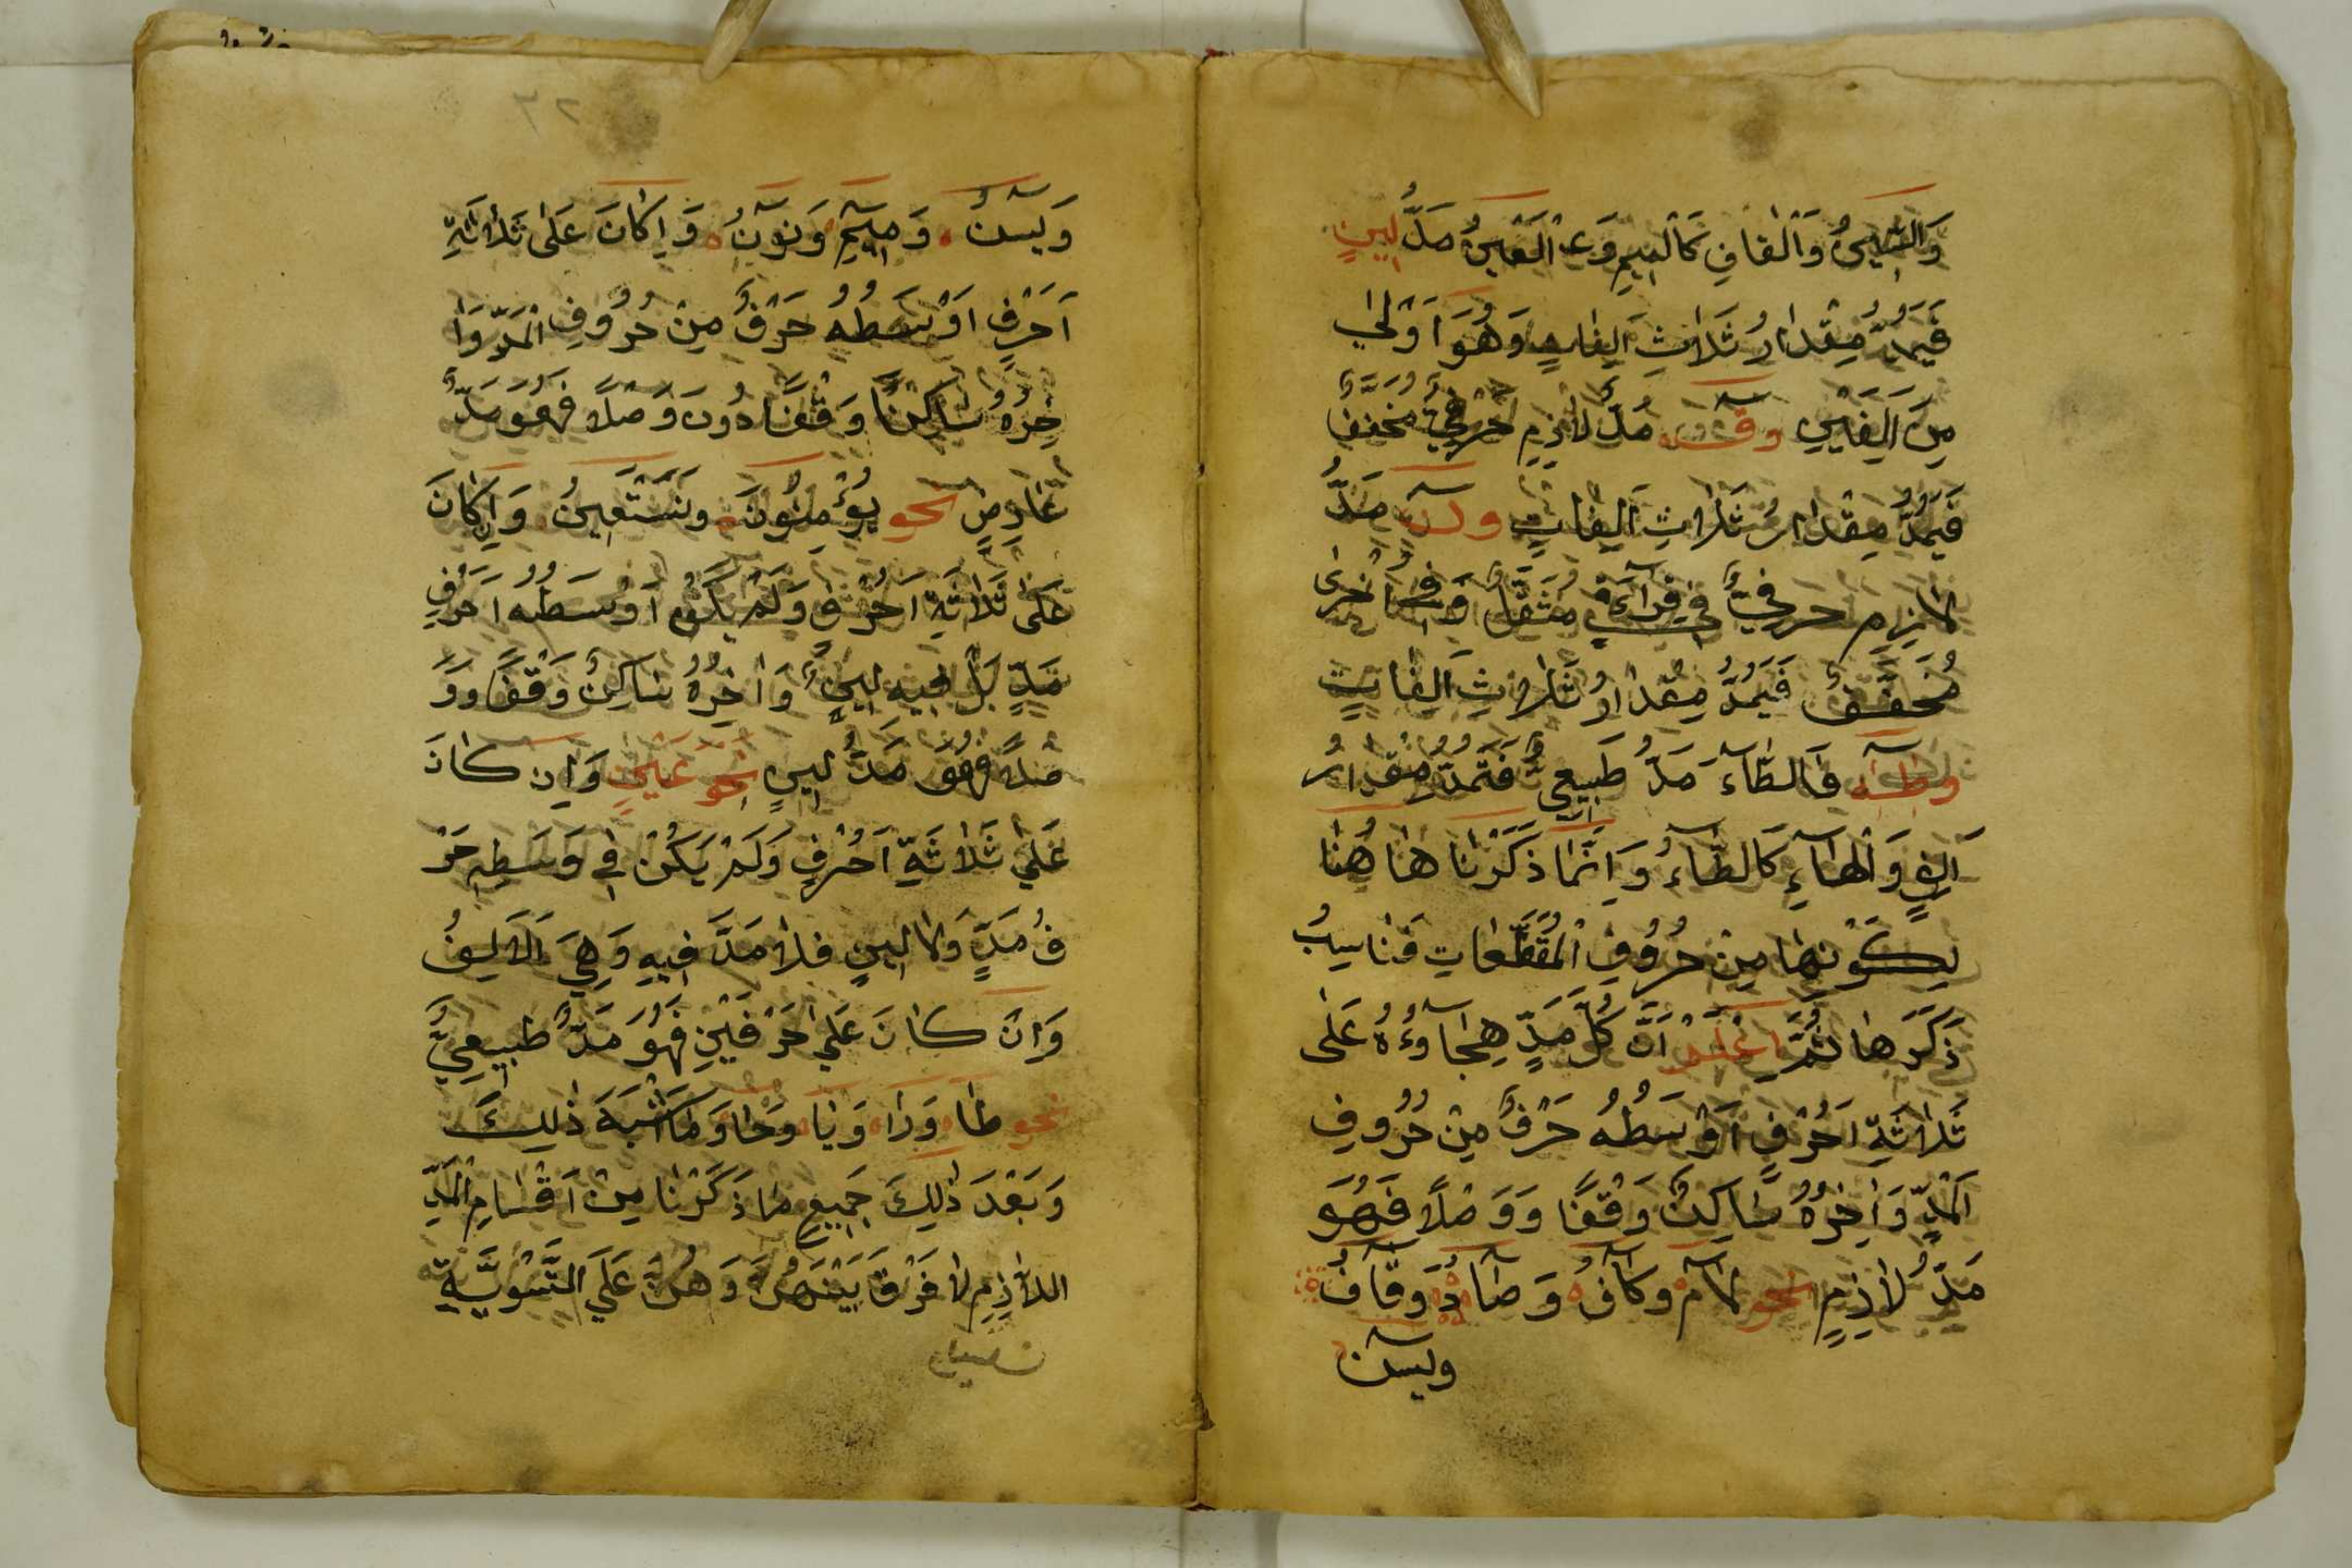 وَالسِّينُ وَالْقَافِ كَالْمِيمِ وَعِ الْعَيْنُ مَدُّ لِينٍ
فَيَمُدُّ مِقْدَارُ ثَلَاثِ اَلِفَاتٍ وَهُوَ اَوْلٰى
مِنَ اَلِفَيْنِ وقٓ مَدٌّ لَازِمٍ حَرْفِيٌّ مُخَفَّفٌ
فَيَمُدُّ مِقْدَارُ ثَلَاثِ اَلِفَاتٍ مَدُّ
لَازِمٍ حَرْفِيٌّ فِي قِرَآءَةٍ مُثَقَّلٌ وَفِي اُخْرٰى
مُخَفَّفٌ فَيَمُدُّ مِقْدَارُ ثَلَاثِ اَلِفَاتٍ
وطٰهٰ فَالطَّآءَ مَدُّ طَبِيعِيٌّ فَتَمُدُّ مِقْدَارُ
اَلِفٍ وَالْهَآءِ كَالطَّآءُ وَاِنَّمَا ذَكَرْنَا هَا هُنَا
لِكَوْنِهَا مِنْ حُرُوفِ الْمُقَطَّعَاتِ فَنَاسِبُ
ذَكَرَهَا ثُمَّ اعْلَمْ اَنَّ كُلَّ مَدٍّ هِجَآوُءُهُ عَلٰى
ثَلَاثَةِ اَحْرُفٍ اَوْسَطُهُ حَرْفٌ مِنْ حُرُوفِ
الْمَدِّ وَاٰخِرُهُ سَاكِنٌ وَقْفًا وَوَصْلًا فَهُوَ
مَدُّ لَازِمٍ نحو لَآمْ وكَآفْ وَصَآدْ وَقَآفُ
وسٓينٌ
وَسٓينٌ وَمِيٓمِ وَنُوٓنُ وَاِكَانَ عَلٰى ثَلَاثَةِ
اَحْرُفٍ اَوْسَطُهُ حَرْفٌ مِنْ حُرُوفِ الْمَدِّ وَا
خِرُهُ سَاكِنًا وَقْفًا دُونَ وَصْلًا فَهُوَ مَدٌّ
عَارِضٍ نحو يُؤْمِنُونَ وَنَسْتَعِينُ وَاِكَانَ
عَلٰى ثَلَاثَةِ اَحْرُفٍ وَلَمْ يَكُنْ اَوْسَطُهُ اَحْرُفِ
مَدٍّ بَلْ فِيهِ لِينٌ وَاٰخِرُهُ سَاكِنٌ وَقْفًا وَوَ
صْلًا فَهُوَ مَدُّ لِينٍ نَحْوُ عَيْنٍ وَاِن كَانَ
عَلٰى ثَلَاثَةِ اَحْرُفٍ وَلَمْ يَكُنْ فِي وَسَطِهِ حَرْ
فُ مَدٍّ وَلَا لِينٍ فَلَا مَدَّ فِيهِ وَهِيَ الْاَلِفُ
وَانْ كَانَ عَلٰى حَرْفَيْنِ فَهُوَ مَدٌّ طَبِيعِيٌّ
نحو طَا وَرَا وَيَا وَحَا وَمَا اَشْبَهَ ذٰلِكَ
وَبَعْدَ ذٰلِكَ جَمِيعِ مَا ذَكَرْنَا مِنْ اَقْسَامِ الْمَدِّ
اللَّازِمِ لَا فَرْقَ بَيْنَهُنَّ وَهُنَّ عَلَى التَّسْوِيَّةِ